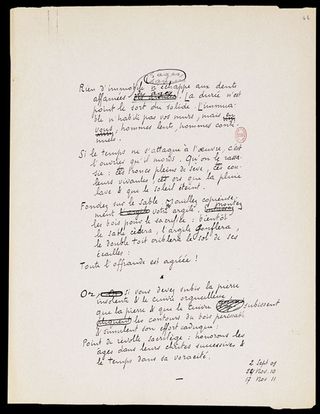 44
Rien d'immobile n'échappe aux dents
affamées des âges. La durée n'est
point le sort du solide. L'immua-
ble n'habite pas vos murs, mais en
vous, hommes lents, hommes conti-
nuels.
Si le temps ne s'attaque à l'œuvre, c'est
l'ouvrier qu'il mord. Qu'on le rassa-
sie : ces troncs pleins de sève, ces cou-
leurs vivantes, ces ors que la pluie
lave & que le soleil éteint.
Fondez sur le sable. Mouillez copieuse-
ment votre argile. Montez
les bois pour le sacrifice : bientôt
le sable cèdera, l'argile gonflera,
le double toit criblera le sol de ses
écailles :
Toute l'offrande est agréée !
Or, si vous devez subir la pierre
insolente & le cuivre orgueilleux
que la pierre & que le cuivre subissent
les contours du bois périssable
& simulent son effort caduque :
Point de révolte sacrilège : honorons les
âges dans leurs chutes successives &
le temps dans sa voracité.
2 Sept. 09
24 Nov. 10
17 Nov. 11